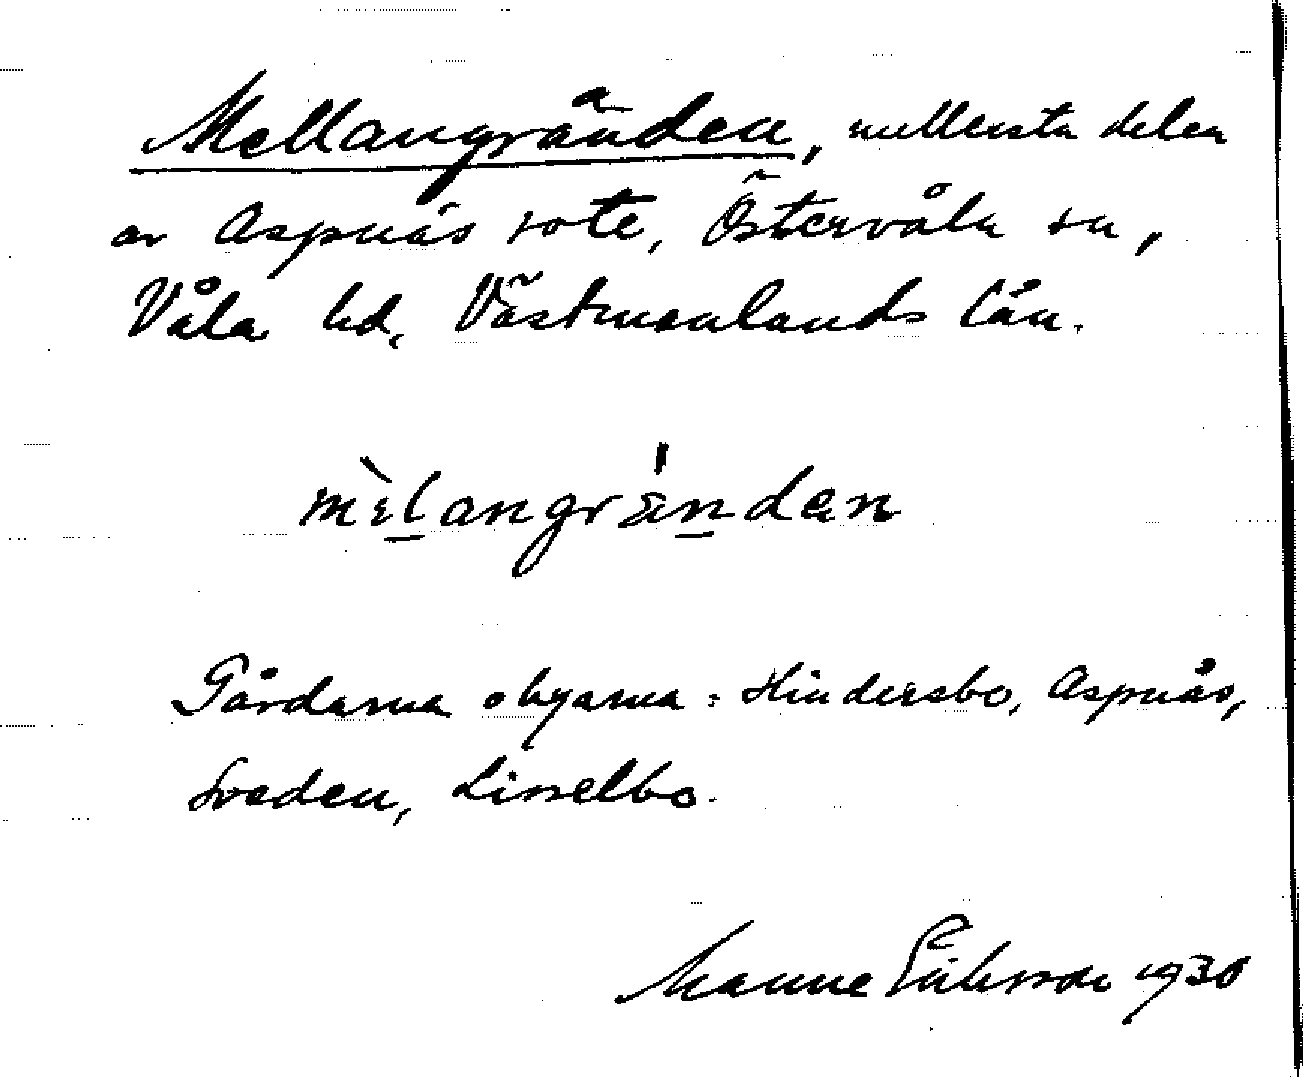 Mellangränden, mellersta delen
av Aspnäs rote, Östervåla sn,
Våla hd, Västmanlands län.
mèlangrändan
Gårdarna o byarna: Hindersbo, Aspnäs,
Sveden, Lisselbo.
Manne Eriksson 1930